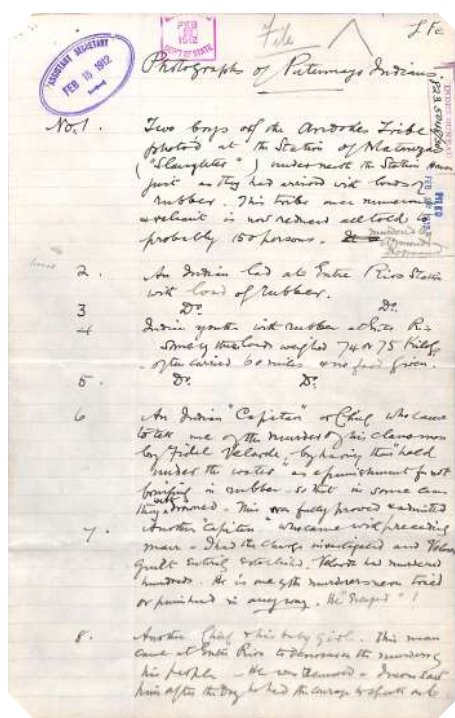 ASSISTANT SECRETARY
FEB 15 1912
FEB
DEPT OF STATE
File
Photographs of Putumayo Indians.
823.5048/
FILED
FEB
No. 1. Two boys of the Andokes Tribe
photo'd at the Station of Matanzas
("Slaughter") underneath the Station House
just as they had arrived with loads of
rubber. This tribe once numerous
& valiant is now reduced all told to
probably 150 persons.
murdered by
Armando
Normand
2. An Indian lad at Entre Rios Station
with load of rubber.
3 Do. Do.
4 Indian youth with rubber Entre Rios
Some of these loads weighed 74 or 75 kilogs
often carried 60 miles & no food given.
5. Do. Do.
6 An Indian "Capitan" or Chief who came
to tell me of the murder of his clansmen
by Fidel Velarde, by having them "held
under the water" as a punishment for not
bringing in rubber so that in some cases
they drowned. This was fully proved & admitted
7. Another "Capitan" who came with preceding
man - I had the charge investigated and Velarde
guilt entirely established. Velarde had murdered
hundreds. He is one of the murderers never tried
or punished in any way. He "Escaped"!
8. Another Chief & his baby girl. This man
came at Entre Rios to denounce the murders of
his people - He was - I never saw
him after the Day he had the courage to speak out